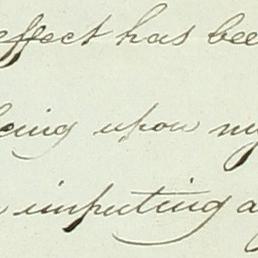 effect has bee
being upon my
imputing a